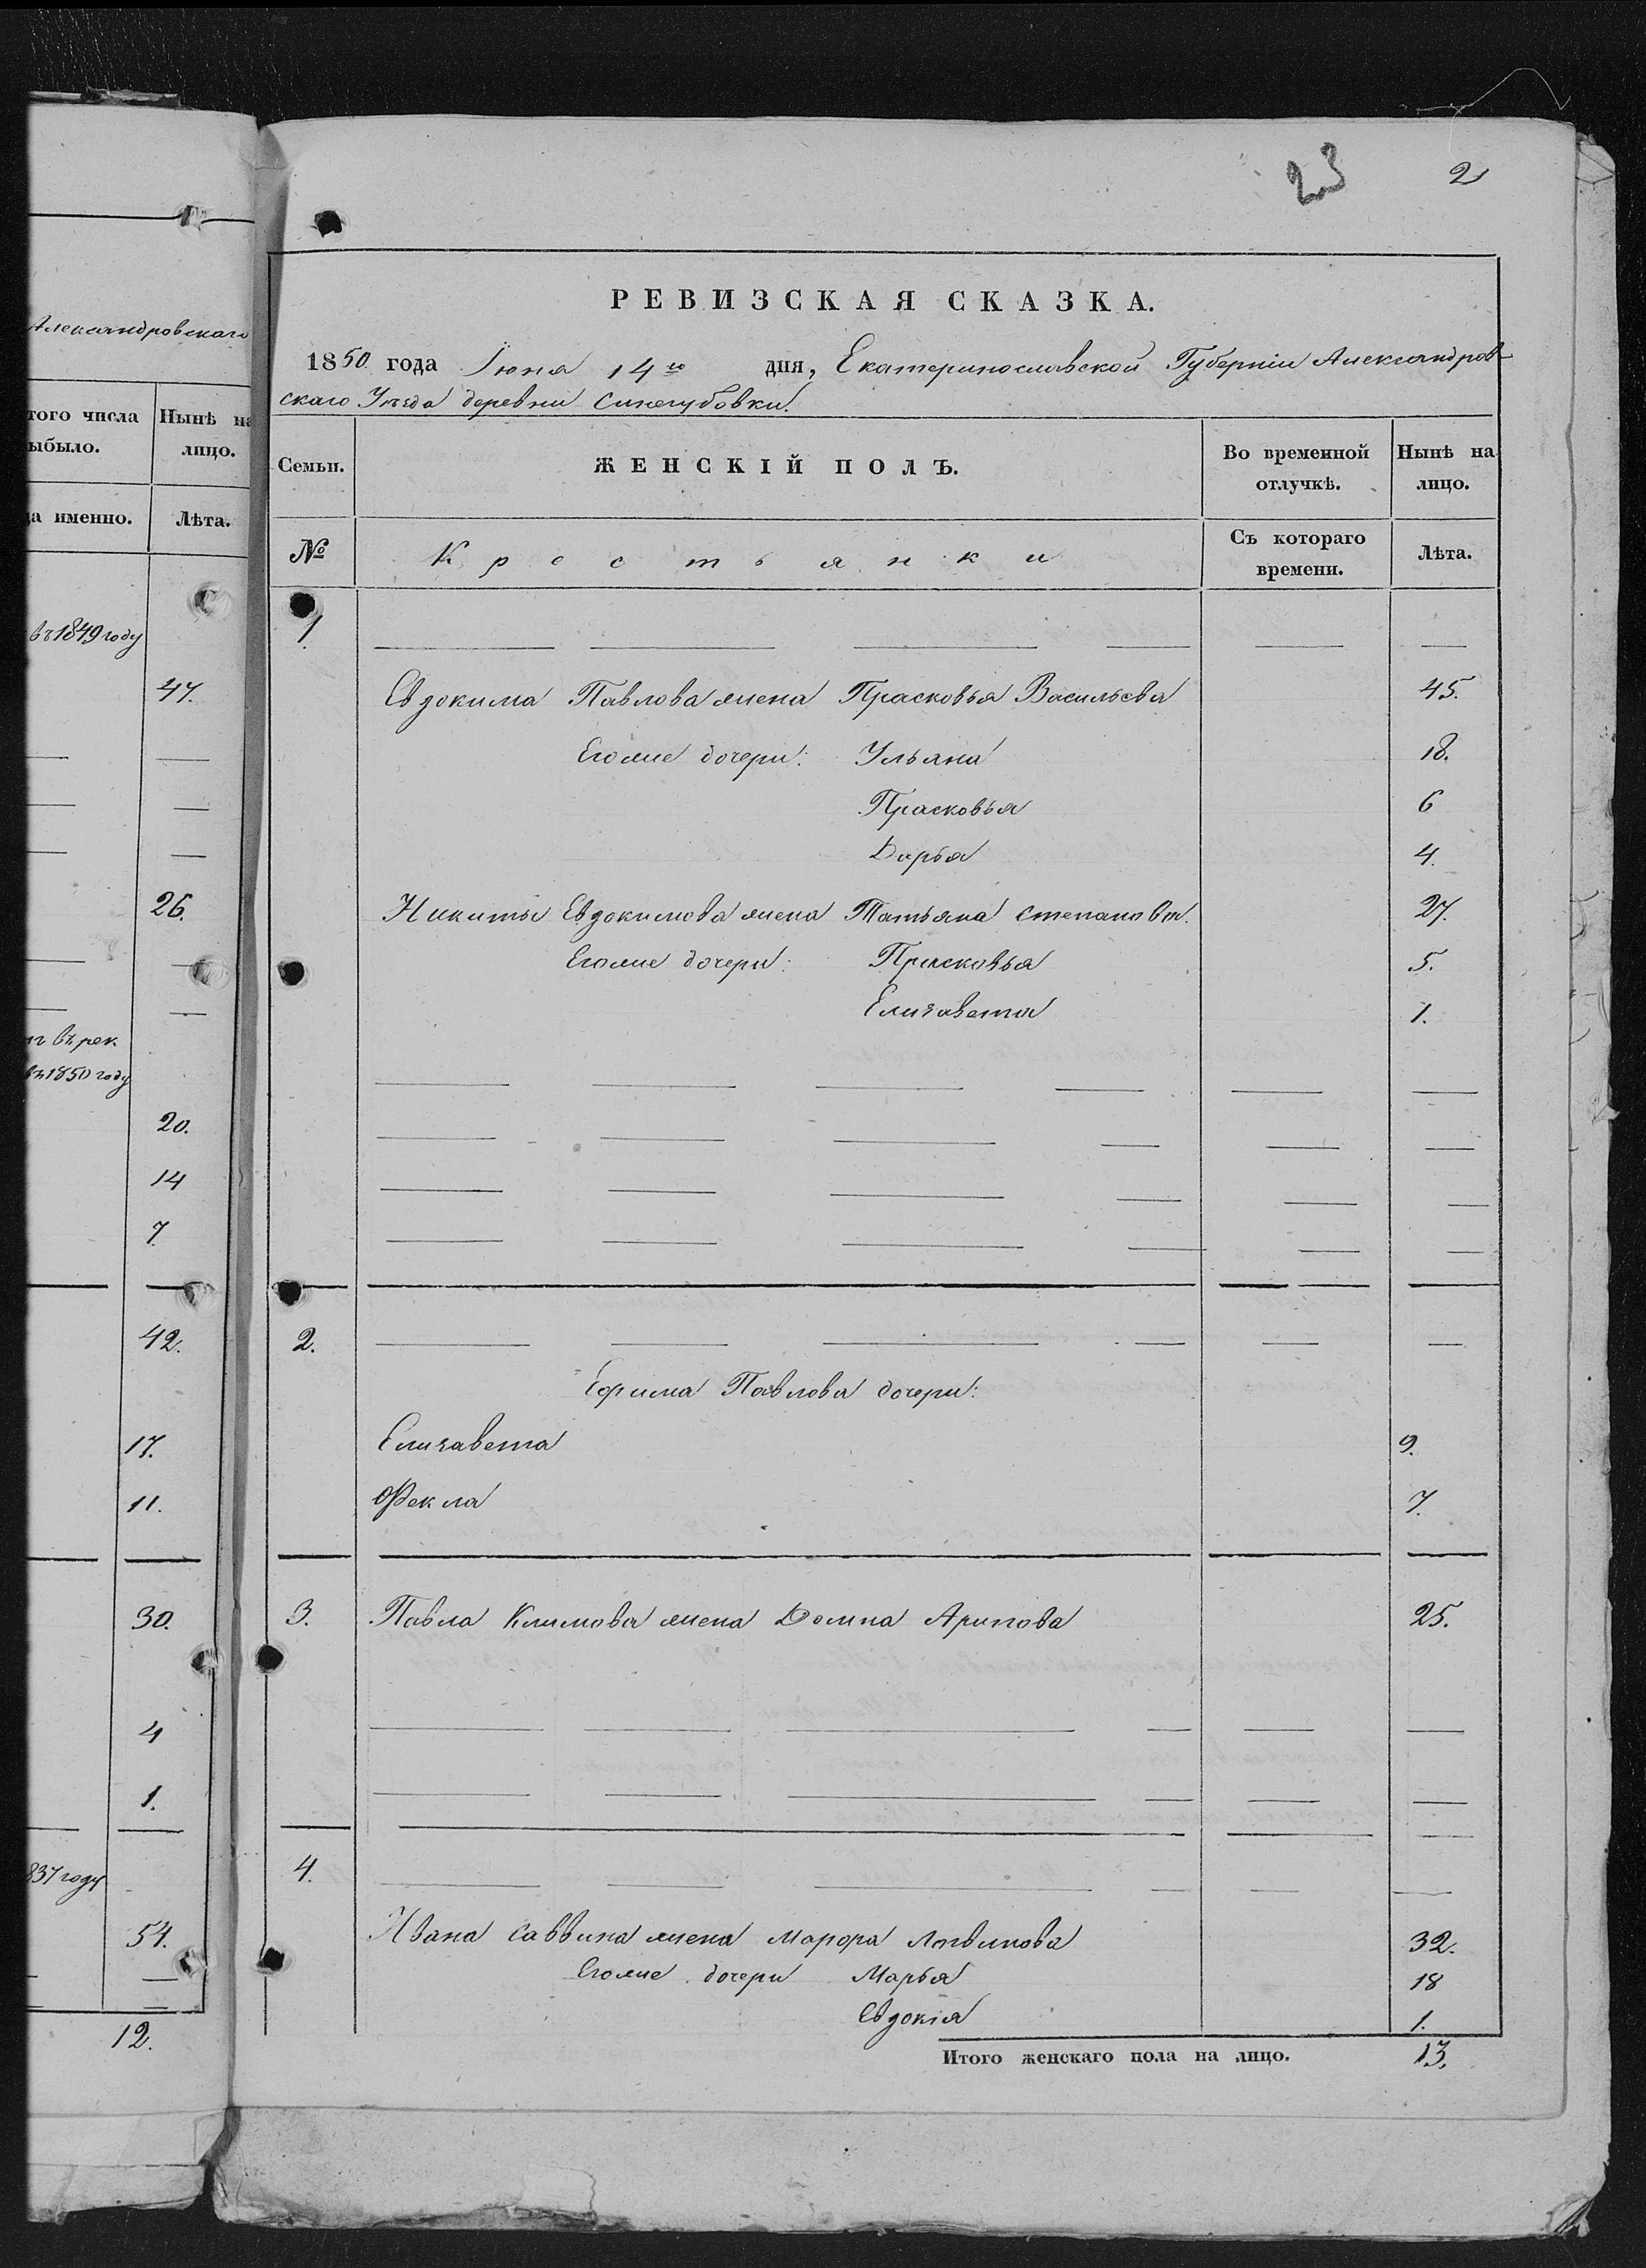 Александровскаго
того числа
ыбыло.
Нынѣ на
лицо.
да именно.
Лѣта.
въ 1849 году
47.
26.
въ рек.
въ 1850 году
20.
14
7.
42.
17.
11.
30.
4
1.
837 году
54.
12.
23
2
РЕВИЗСКАЯ СКАЗКА.
1850 года Іюня 14го дня, Екатеринославской Губерніи Александров-
скаго Уѣзда деревни Синегубовки.
Семьи.
ЖЕНСКІЙ ПОЛЪ.
Во временной
отлучкѣ.
Нынѣ на
лицо.
№
Крестьянки
Съ котораго
времени.
Лѣта.
1.
Евдокима Павлова жена Прасковья Васильева 45.
Егоже дочери: Ульяна 18.
Прасковья 6
Дарья 4.
Никиты Евдокимова жена Татьяна Степанов 27.
Егоже дочери: Прасковья 5.
Елизавета 1.
2.
Ефима Павлова дочери:
Елизавета 9.
Фекла 7.
3. Павла Климова жена Домна 25.
4.
Ивана Саввина жена Марфа Логвинова 32.
Егоже дочери Марья 18
Евдокія 1.
Итого женскаго пола на лицо. 13.